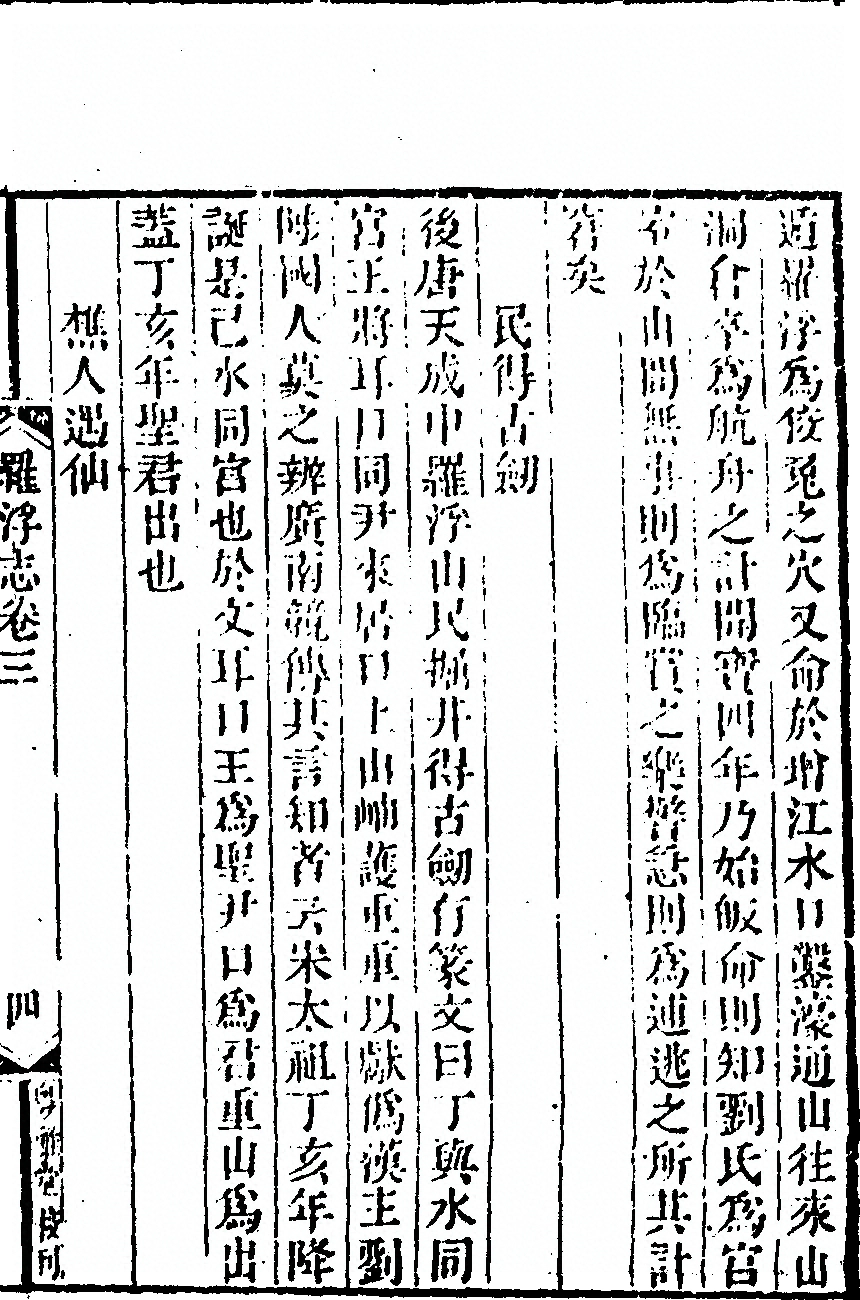 遁羅浮為俊兎之穴又命於增江水口鑿濠通山往來山
洞作亭為航舟之計開寶四年乃始皈命則知劉氏為宫
室於山間無事則為臨賞之樂警急則為逋逃之所其計
窘矣
民得古劒
後唐天成中羅浮山民掘井得古劒有篆文曰丁與水同
宫王將耳口同尹來居口上山岫護重重以獻僞漢主劉
陟國人莫之辨廣南競傳其言知者云宋太祖丁亥年降
誕是已水同宫也於文耳口王為聖尹口為君重山為出
葢丁亥年聖君出也
樵人遇仙
羅浮志卷三
四
粤雅堂校刊